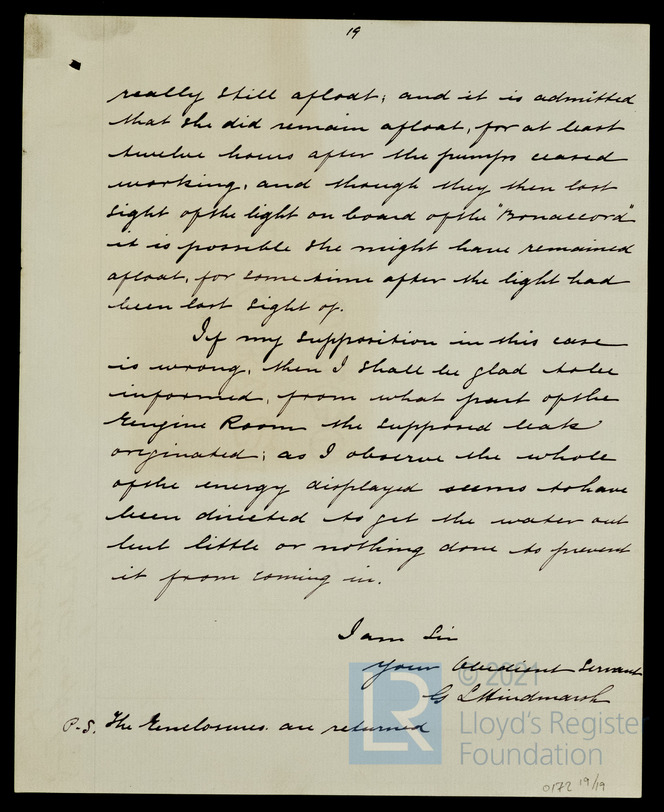 19
really still afloat; and it is admitted
that she did remain afloat, for at least
twelve hours after the pumps ceased
working, and though they then lost
sight of the light on board of the "Bonaccord"
it is possible she might have remained
afloat, for some time after the light had
been lost sight of.
If my supposition in this case
is wrong, then I shall be glad to be
informed, from what part of the
Engine Room the supposed leak
originated; as I observe the whole
of the energy displayed seems to have
been directed to get the water out
but little or nothing done to prevent
it from coming in.
I am Sir
Your Obedient Servant
G L Hindmarsh
P.S. The Enclosures are returned
© 2021
LR
Lloyd's Register
Foundation
0172 19/19